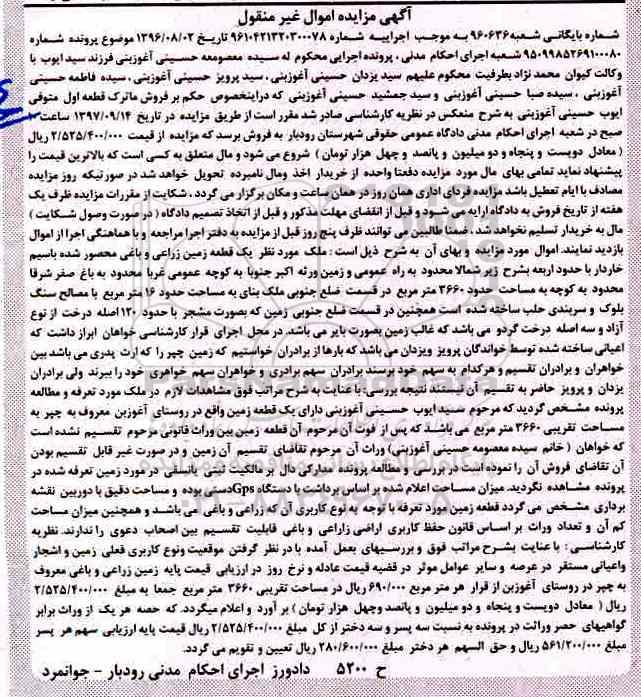 آگهی مزایده اموال غیر منقول
شماره بایگانی شعبه ۹۶۰۶۳۶ به موجب اجراییه شماره ۹۶۱۰۴۲۱۳۲۰۳۰۰۰۷۸ تاریخ ۱۳۹۶/۰۸/۰۲ موضوع پرونده شماره
۹۵۰۹۹۸۵۲۶۹۱۰۰۰۸۰ شعبه اجرای احکام مدنی ، پرونده اجرایی محکوم له سیده معصومه حسینی آغوزبنی فرزند سید ایوب با
وکالت کیوان محمد نژاد بطرفیت محکوم علیهم سید یزدان حسینی آغوزبنی ، سید پرویز حسینی آغوزبنی ، سیده فاطمه حسینی
آغوزبنی ، سیده صبا حسینی آغوزبنی و سید جمشید حسینی آغوزبنی که دراینخصوص حکم بر فروش ماترک قطعه اول متوفی
ایوب حسینی آغوزبنی به شرح منعکس در نظریه کارشناسی صادر شد مقرر است از طریق مزایده در تاریخ ۱۳۹۷/۰۹/۱۴ ساعت
صبح در شعبه اجرای احکام مدنی دادگاه عمومی حقوقی شهرستان رودبار به فروش برسد که مزایده از قیمت ۲/۵۲۵/۴۰۰/۰۰۰ ریال
( معادل دویست و پنجاه و دو میلیون و پانصد و چهل هزار تومان ) شروع می شود و مال متعلق به کسی است که بالاترین قیمت را
پیشنهاد نماید تمامی بهای مال مورد مزایده دفعتا واحده از خریدار اخذ ومال نامبرده تحویل خواهد شد در صورتیکه روز مزایده
مصادف با ایام تعطیل باشد مزایده فردای اداری همان روز در همان ساعت و مکان برگزار می گردد ، شکایت از مقررات مزایده ظرف یک
هفته از تاریخ فروش به دادگاه ارایه می شود و قبل از انقضای مهلت مذکور و قبل از اتخاذ تصمیم دادگاه ( در صورت وصول شکایت )
مال به خریدار تسلیم نخواهد شد ، ضمنا طالبین می توانند ظرف پنج روز قبل از مزایده به دفتر اجرا مراجعه و با هماهنگی اجرا از اموال
بازدید نمایند. اموال مورد مزایده و بهای آن به شرح ذیل است : ملک مورد نظر یک قطعه زمین زراعی و باغی محصور شده باسیم
خاردار با حدود اربعه بشرح زیر شمالا محدود به راه عمومی و زمین ورثه اکبر جنوبا به کوچه عمومی غربا محدود به باغ صفر شرقا
محدود به کوچه به مساحت حدود ۳۶۶۰ متر مربع در قسمت ضلع جنوبی ملک بنای به مساحت حدود ۱۶ متر مربع با مصالح سنگ
بلوک و سربندی حلب ساخته شده است همچنین در قسمت ضلع جنوبی زمین که بصورت مشجر با حدود ۱۲۰ اصله درخت از نوع
آزاد و سه اصله درخت گردو می باشد که غالب زمین بصورت بایر می باشد. در محل اجرای قرار کارشناسی خواهان ابراز داشت که
اعیانی ساخته شده توسط خواندگان پرویز ویزدان می باشد که بارها از برادران خواستیم که زمین چپر را که ارث پدری می باشد بین
خواهران و برادران تقسیم و هرکدام به سهم خود برسند برادران سهم برادری و خواهران سهم خواهری خود را ببرند ولی برادران
یزدان و پرویز حاضر به تقسیم آن نیستند نتیجه بررسی: با عنایت به شرح مراتب فوق مشاهدات لازم در ملک مورد تعرفه و مطالعه
پرونده مشخص گردید که مرحوم سید ایوب حسینی آغوزبنی دارای یک قطعه زمین واقع در روستای آغوزبن معروف به چپر به
مساحت تقریبی ۳۶۶۰ متر مربع می باشد که پس از فوت آن مرحوم آن قطعه زمین بین وراث قانونی مرحوم تقسیم نشده است
که خواهان ( خانم سیده معصومه حسینی آغوزبنی) وراث آن مرحوم تقاضای تقسیم آن زمین و در صورت غیر قابل تقسیم بودن
آن تقاضای فروش آن را نموده است در بررسی و مطالعه پرونده مدارکی دال بر مالکیت ثبتی یانسقی در مورد زمین تعرفه شده در
پرونده مشاهده نگردید. میزان مساحت اعلام شده بر اساس برداشت با دستگاه Gpsدستی بوده و مساحت دقیق با دوربین نقشه
برداری مشخص می گردد قطعه زمین مورد تعرفه با توجه به نوع کاربری آن که زراعی و باغی می باشد و همچنین میزان مساحت
کم آن و تعداد وراث بر اساس قانون حفظ کاربری اراضی زراعی و باغی قابلیت تقسیم بین اصحاب دعوی را ندارند. نظریه
کارشناسی : با عنایت بشرح مراتب فوق و بررسیهای بعمل آمده با در نظر گرفتن موقعیت ونوع کاربری فعلی زمین و اشجار
واعیانی مستقر در عرصه و سایر عوامل موثر در قضیه قیمت عادله و نرخ روز در ارزیابی قیمت پایه زمین زراعی و باغی معروف
به چپر در روستای آغوزبن از قرار هر متر مربع ۶۹۰/۰۰۰ ریال در مساحت تقریبی ۳۶۶۰ متر مربع جمعا به مبلغ ۲/۵۲۵/۴۰۰/۰۰۰
ریال ( معادل دویست و پنجاه و دو میلیون و پانصد وچهل هزار تومان ) بر آورد و اعلام میگردد. که حصه هر یک از وراث برابر
گواهیهای حصر وراثت در پرونده به نسبت سه پسر و سه دختر از کل مبلغ ۲/۵۲۵/۴۰۰/۰۰۰ ریال قیمت پایه ارزیابی سهم هر پسر
مبلغ ۵۶۱/۲۰۰/۰۰۰ ریال و حق السهم هر دختر مبلغ ۲۸۰/۶۰۰/۰۰۰ ریال تعیین و تقویم می گردد.
ح ۵۲۰۰ دادورز اجرای احکام مدنی رودبار - جوانمرد